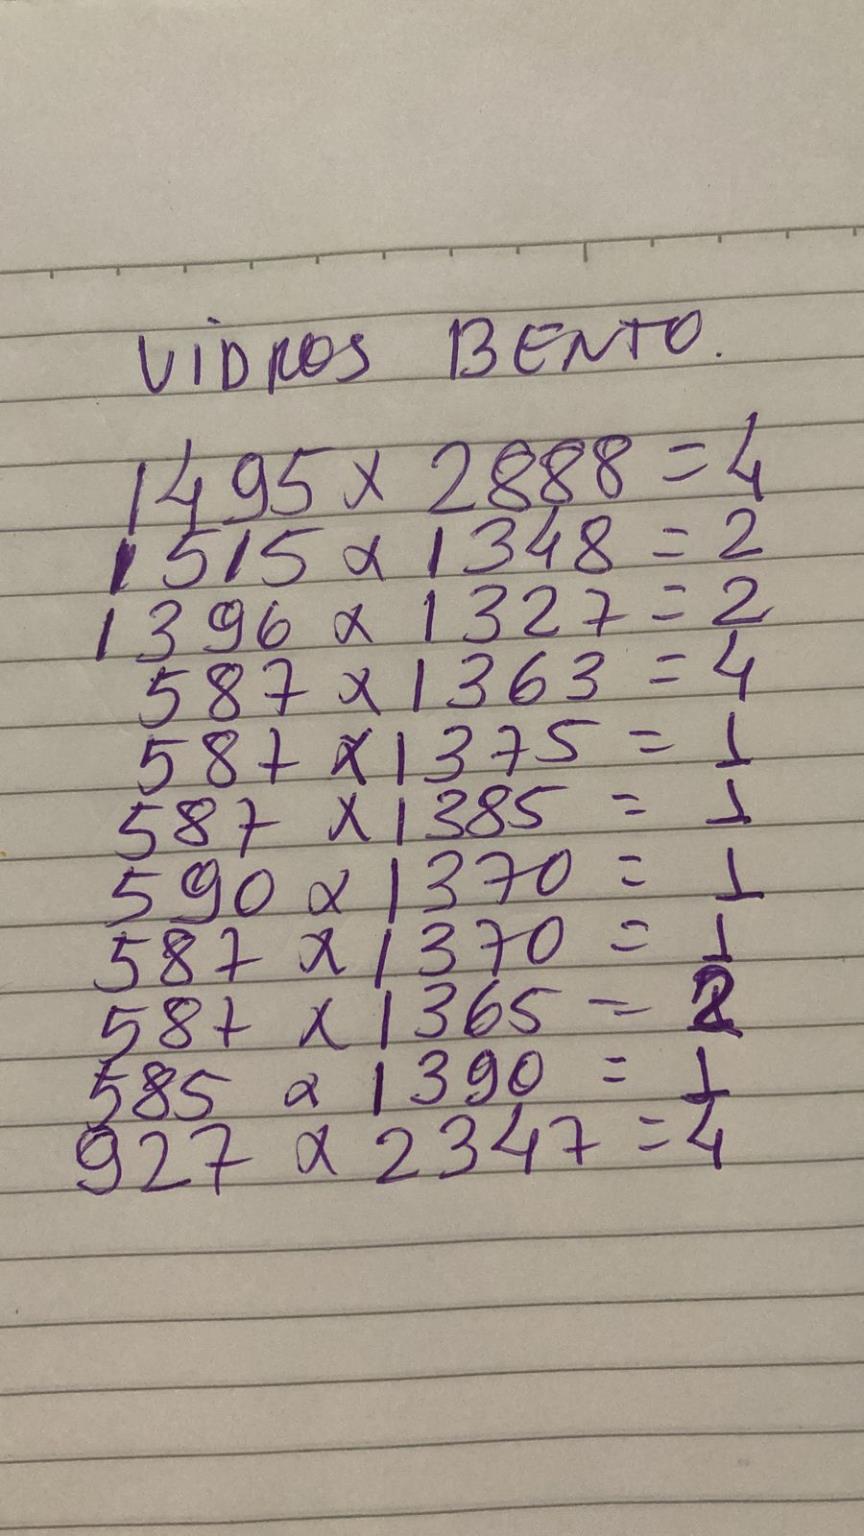 VIDROS BENTO.
1495 x 2888 = 4
1515 x 1348 = 2
1396 x 1327 = 2
587 x 1363 = 4
587 x 1375 = 1
587 x 1385 = 1
590 x 1370 = 1
587 x 1370 = 1
587 x 1365 = 2
585 x 1390 = 1
927 x 2347 = 4